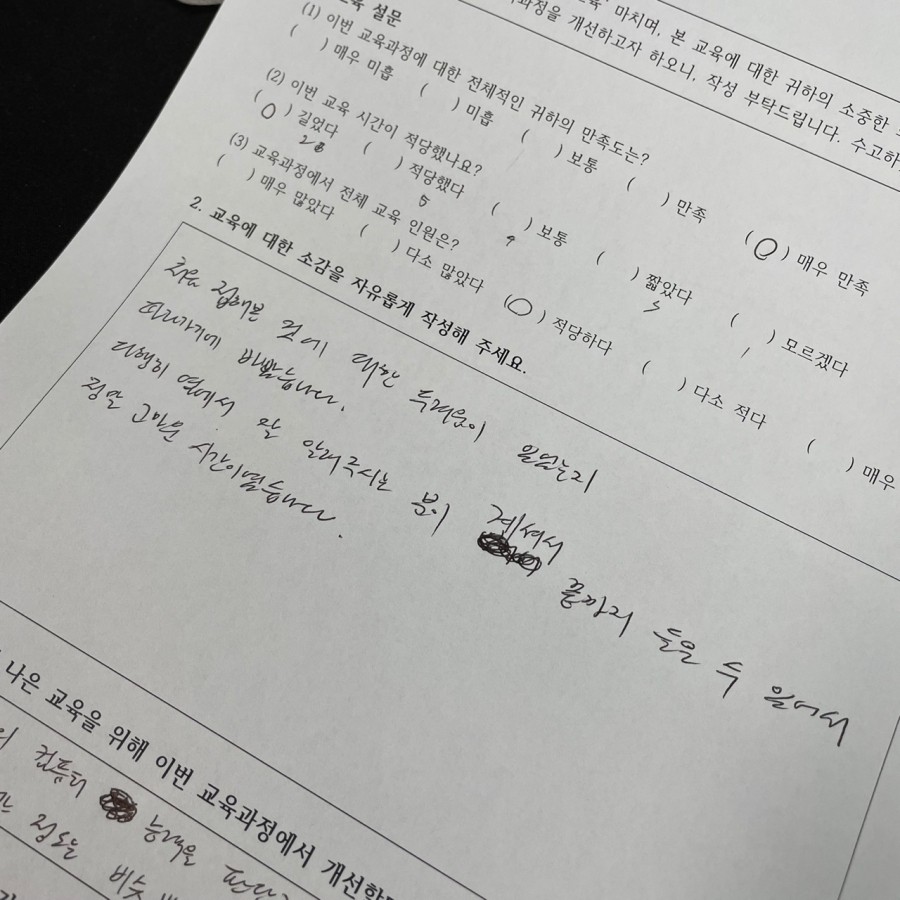 마치며, 본 교육에 대한 귀하의 소중한
과정을 개선하고자 하오니, 작성 부탁드립니다. 수고하
육 설문
(1) 이번 교육과정에 대한 전체적인 귀하의 만족도는?
( ) 매우 미흡 ( ) 미흡 ( ) 보통 ( ) 만족 (O) 매우 만족
(2) 이번 교육 시간이 적당했나요?
(O) 길었다 ( ) 적당했다 ( ) 보통 ( ) 짧았다 ( ) 모르겠다
(3) 교육과정에서 전체 교육 인원은?
( ) 매우 많았다 ( ) 다소 많았다 (O) 적당하다 ( ) 다소 적다 ( ) 매우
2. 교육에 대한 소감을 자유롭게 작성해 주세요.
처음 접해본 것에 대한 두려움이 있었는지
따라가기에 바빴습니다.
다행히 옆에서 잘 알려주시는 분이 계셔서 끝까지 들을 수 있어서
정말 고마운 시간이었습니다.
나은 교육을 위해 이번 교육과정에서 개선할
컴퓨터 능력을
정도는 비슷